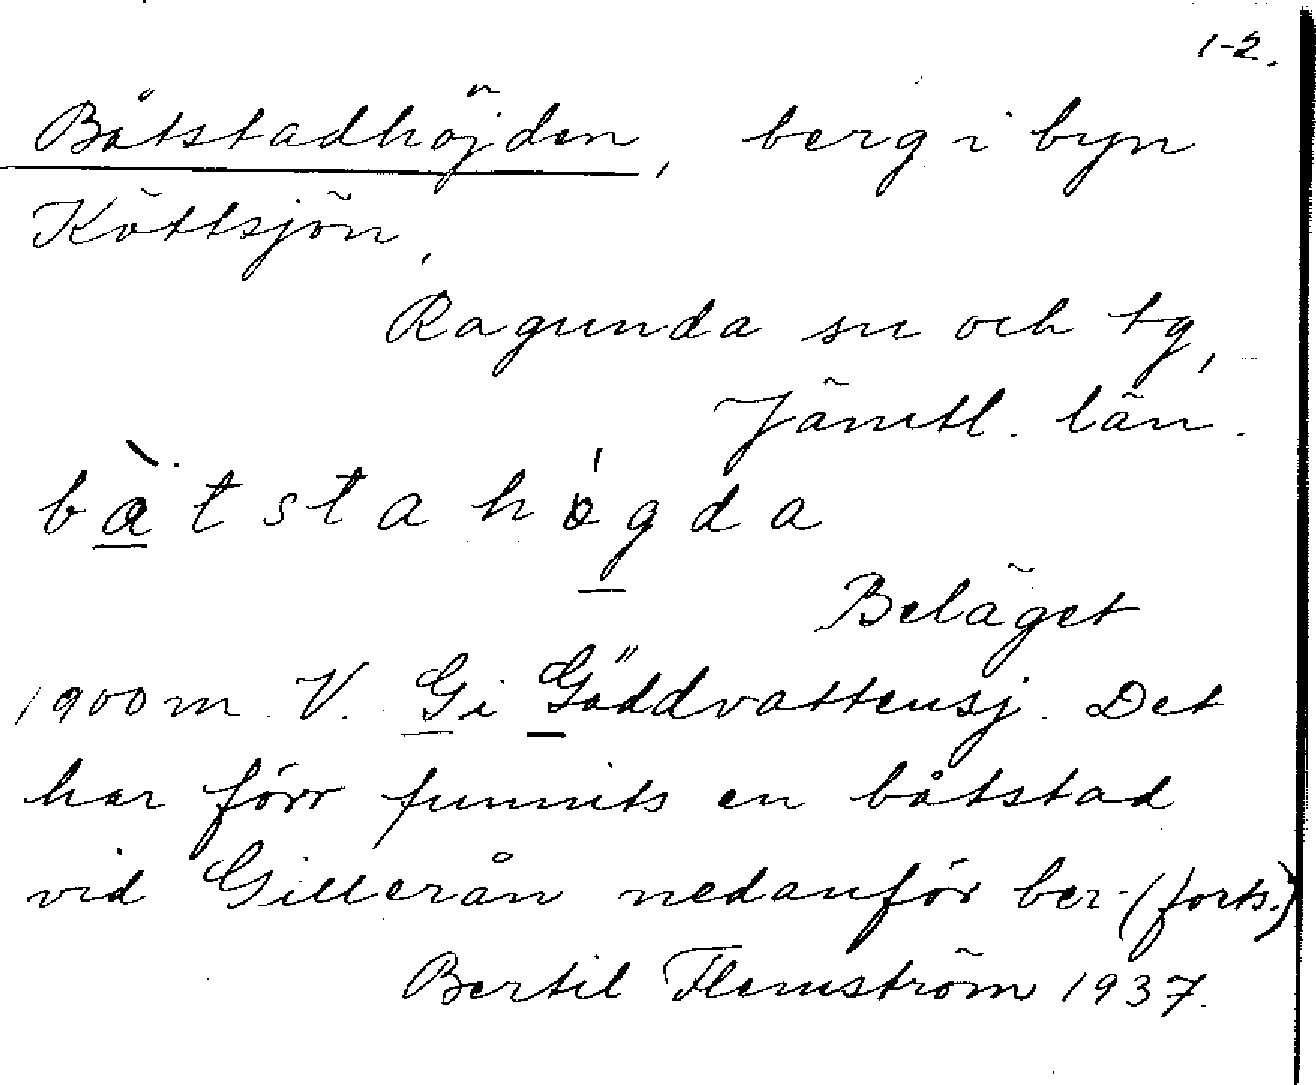 1-2.
Båtstadhöjden, berg i byn
Köttsjön,
Ragunda sn och tg,
Jämtl. län.
bàtstahògda
Beläget
1900 m V. Gi Gäddvattensj. Det
har förr funnits en båtstad
vid Gillerån nedanför ber- (forts.)
Bertil Flemström 1937.